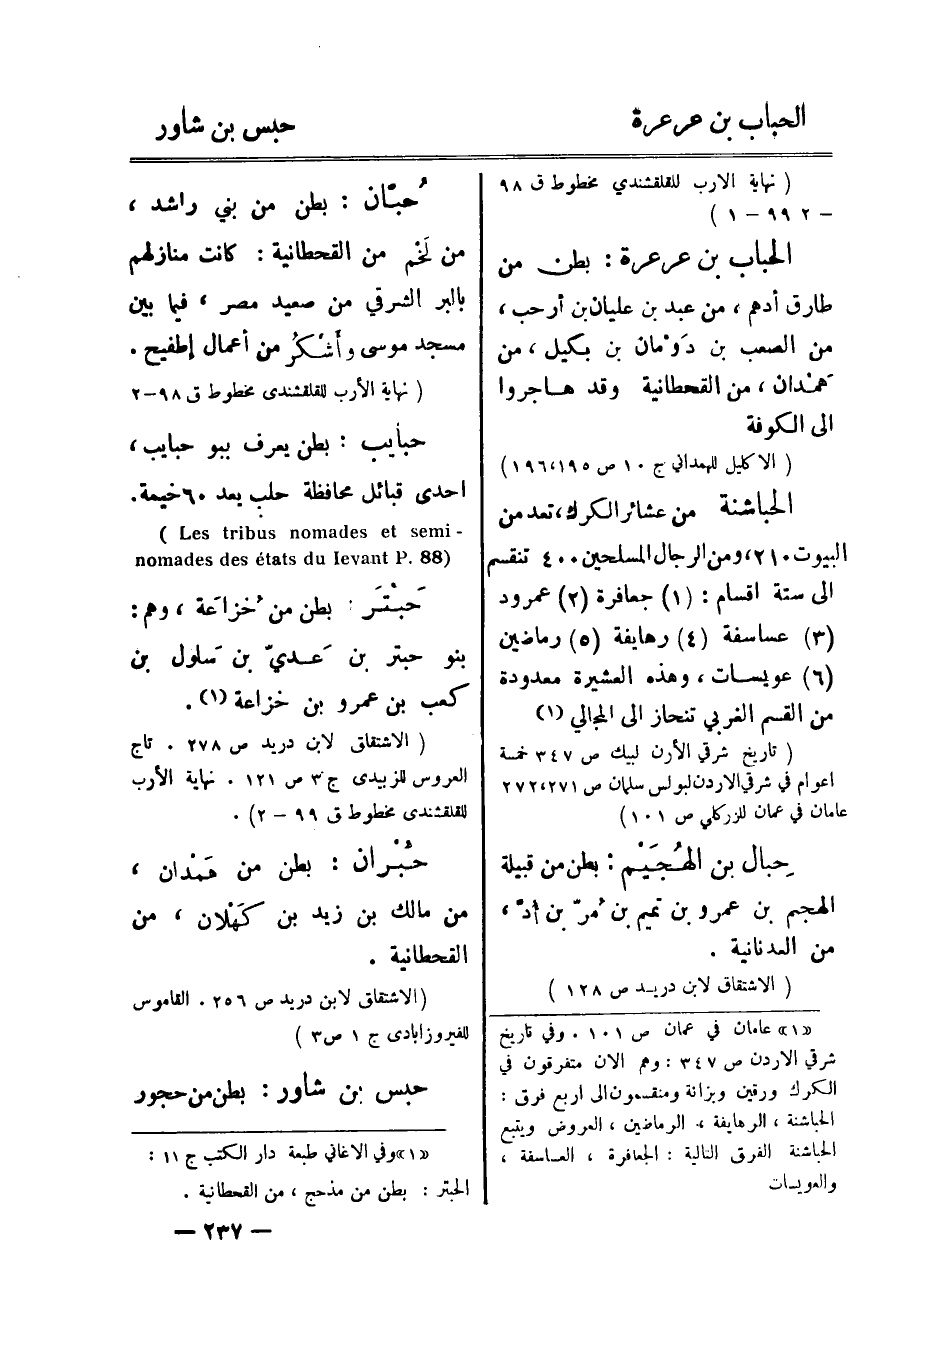 الحباب بن عرعرة
حبس بن شاور
( نهاية الارب للقلقشندي مخطوط ق ٩٨
– ٢ ٩٩ – ١ )
الحباب بن عرعرة : بطن من
طارق أدهم ، من عبد بن عليان بن أرحب ،
من الصعب بن دَوْمان بن بكيل ، من
هَمْدان ، من القحطانية وقد هاجروا
الى الكوفة
( الاكليل للهمداني ج ١٠ ص ١٩٥،١٩٦)
الحباشنة من عشائر الكرك، تعد من
البيوت ٢١٠، ومن الرجال المسلحين ٤٠٠ تنقسم
الى ستة اقسام : (١) جعافرة (٢) عمرود
(٣) عساسفة (٤) رهايفة (٥) رماضين
(٦) عويسات ، وهذه العشيرة معدودة
من القسم الغربي تنحاز الى المجالي (١)
( تاريخ شرقي الأرن لبيك ص ٣٤٧ خمسة
اعوام في شرقي الاردن لبولس سلمان ص ٢٧١،٢٧٢
عامان في عمان للزركلي ص ١٠١)
حِبال بن الهُجَيْم : بطن من قبيلة
الهجم بن عمرو بن تميم بن مُرّ بن أدّ ،
من العدنانية .
( الاشتقاق لابن دريد ص ١٢٨ )
«١» عامان في عمان ص ١٠١ . وفي تاريخ
شرقي الاردن ص ٣٤٧ : وهم الان متفرقون في
الكرك ورقين وبزانة ومنقسمون الى اربع فرق :
الحباشنة ، الرهايفة ، الرماضين ، العروض ويتبع
الحباشنة الفرق التالية : الجعافرة ، العساسفة ،
والعويسات
حُبّان : بطن من بني راشد ،
من لَخْم من القحطانية : كانت منازلهم
بالبر الشرقي من صعيد مصر ، فيما بين
مسجد موسى وأَشْكُر من أعمال إطفيح .
( نهاية الأرب للقلقشندى مخطوط ق ٩٨–٢
حبايب : بطن يعرف ببو حبايب ،
احدى قبائل محافظة حلب يعد ٦٠ خيمة.
( Les tribus nomades et semi-
nomades des états du levant P. 88)
حَبْتَر : بطن من خُزاعة ، وهم :
بنو حبتر بن عَديّ بن سَلول بن
كعب بن عمرو بن خزاعة (١) .
( الاشتقاق لابن دريد ص ٢٧٨ . تاج
العروس للزبيدى ج ٣ ص ١٢١ . نهاية الأرب
للقلقشندى مخطوط ق ٩٩ – ٢) .
حُبْران : بطن من هَمْدان ،
من مالك بن زيد بن كَهْلان ، من
القحطانية .
(الاشتقاق لابن دريد ص ٢٥٦ . القاموس
للفيروزابادى ج ١ ص٣ )
حبس بن شاور : بطن من حجور
«١»وفي الاغاني طبعة دار الكتب ج ١١ :
الحبتر : بطن من مذحج ، من القحطانية .
– ٢٣٧ –